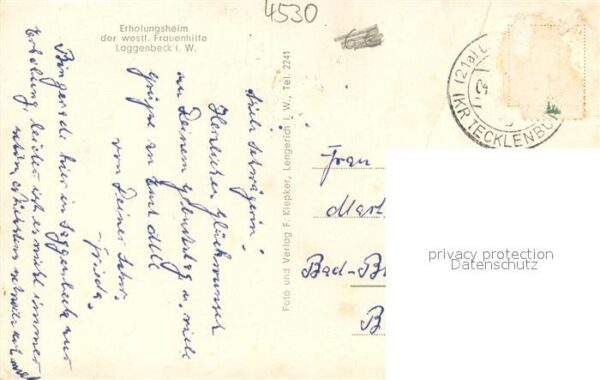 4530
Erholungsheim
der westf. Frauenhilfe
Laggenbeck i. W.
Liebe Schwägerin!
Herzlichen Glückwunsch
zu Deinem Geburtstag u. viele
Grüße an Euch alle
von Deiner Schw.
Frieda.
hier in Laggenbeck zur
Erholung leider ist es nicht immer
schön
Foto und Verlag F. Kiepker, Lengerich i. W., Tel. 2241
(21a) L
(KR TECKLENBU
Frau
Mart
Bad-B
B
privacy protection
Datenschutz